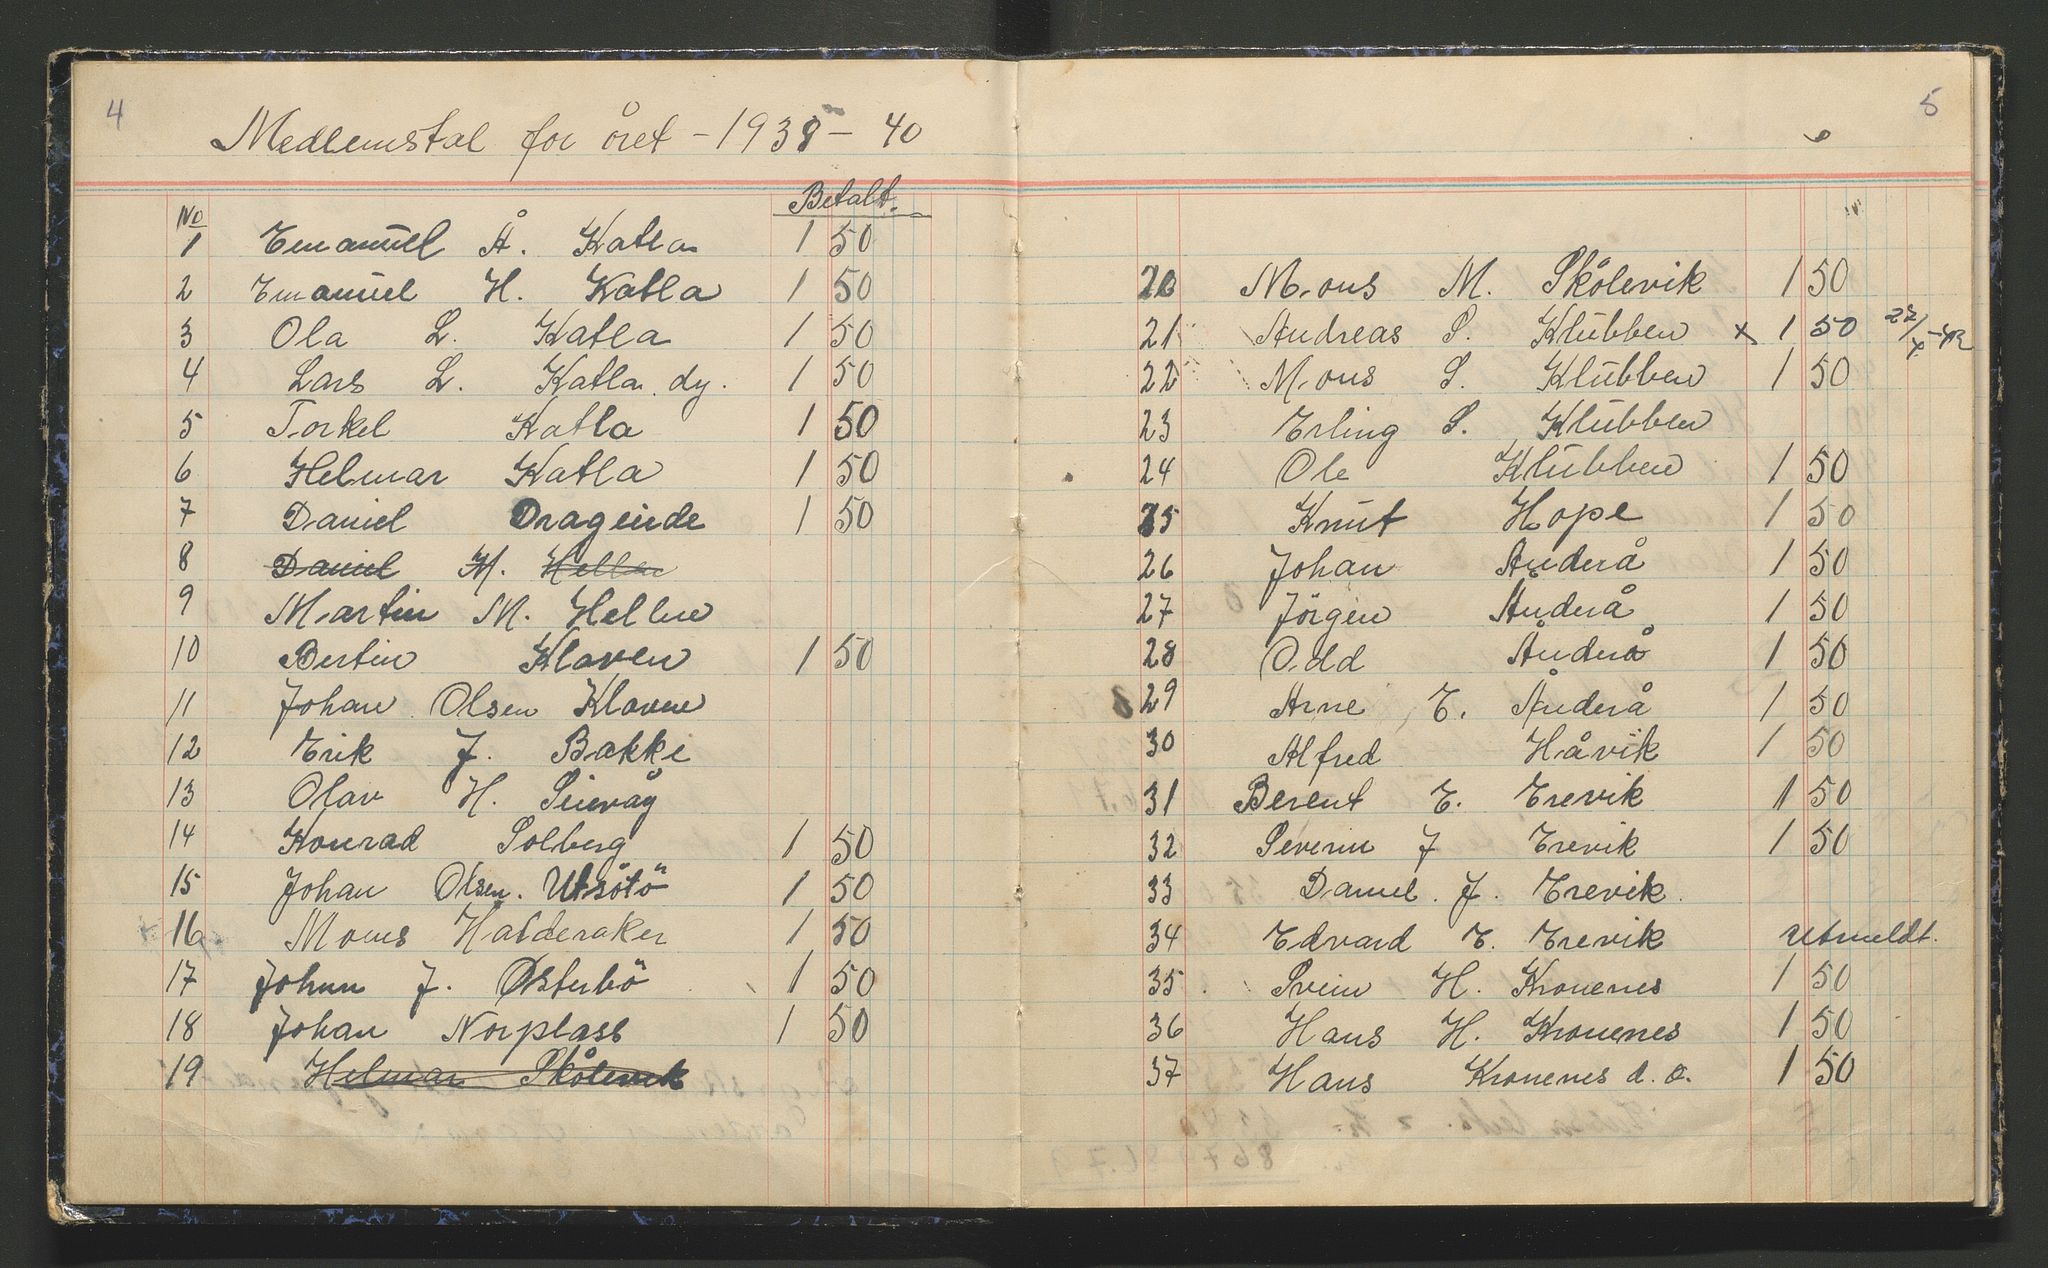 4
Medlemstal for året - 1939 - 40
No Betalt.
1 Emanuel Å. Katla 1 50
2 Emanuel H. Katla 1 50
3 Ola L. Katla 1 50
4 Lars L. Katla dy. 1 50
5 Torkel Katla 1 50
6 Helmar Katla 1 50
7 Daniel Drageide 1 50
8 Daniel M. Hellen
9 Martin M. Hellen
10 Bertin Klaven 1 50
11 Johan Olsen Klaven
12 Erik J. Bakke
13 Olav H. Seievåg
14 Konrad Solberg 1 50
15 Johan Olsen. Utsötö 1 50
16 Mons Halderaker 1 50
17 Johan J. Österbö 1 50
18 Johan Norplass 1 50
19 Helmar Skålevik
5
20 Mons M. Skålevik 1 50
21 Andreas S. Klubben x 1 50
22 Mons S. Klubben 1 50
23 Erling S. Klubben
24 Ole Klubben 1 50
25 Knut Hope 1 50
26 Johan Åuderå 1 50
27 Jörgen Åuderå 1 50
28 Odd Åuderå 1 50
29 Arne E. Åuderå 1 50
30 Alfred Håvik 1 50
31 Berent E. Erevik 1 50
32 Severin J Erevik 1 50
33 Daniel. J. Erevik.
34 Edvard E. Erevik Utmeldt.
35 Svein H. Kronenes 1 50
36 Hans H. Kronenes 1 50
37 Hans Kronenes d. e. 1 50